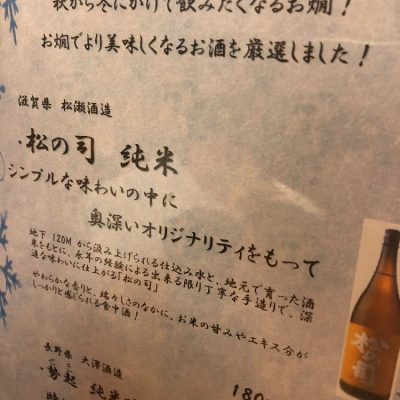 秋から冬にかけて飲みたくなるお燗!
お燗でより美味しくなるお酒を厳選しました!
滋賀県 松瀬酒造
・松の司 純米
シンプルな味わいの中に
奥深いオリジナリティをもって
地下 120M から汲み上げられる仕込み水と、地元で育った酒
米をもとに、永年の経験による出来る限り丁寧な手造りで、深
遠な味わいに仕上がる「松の司」
やわらかな香りと、瑞々しさのなかに、お米の甘みやエキス分が
しっかりと感じられる食中酒!
長野県 大澤酒造
・勢起 純米
180
松の司